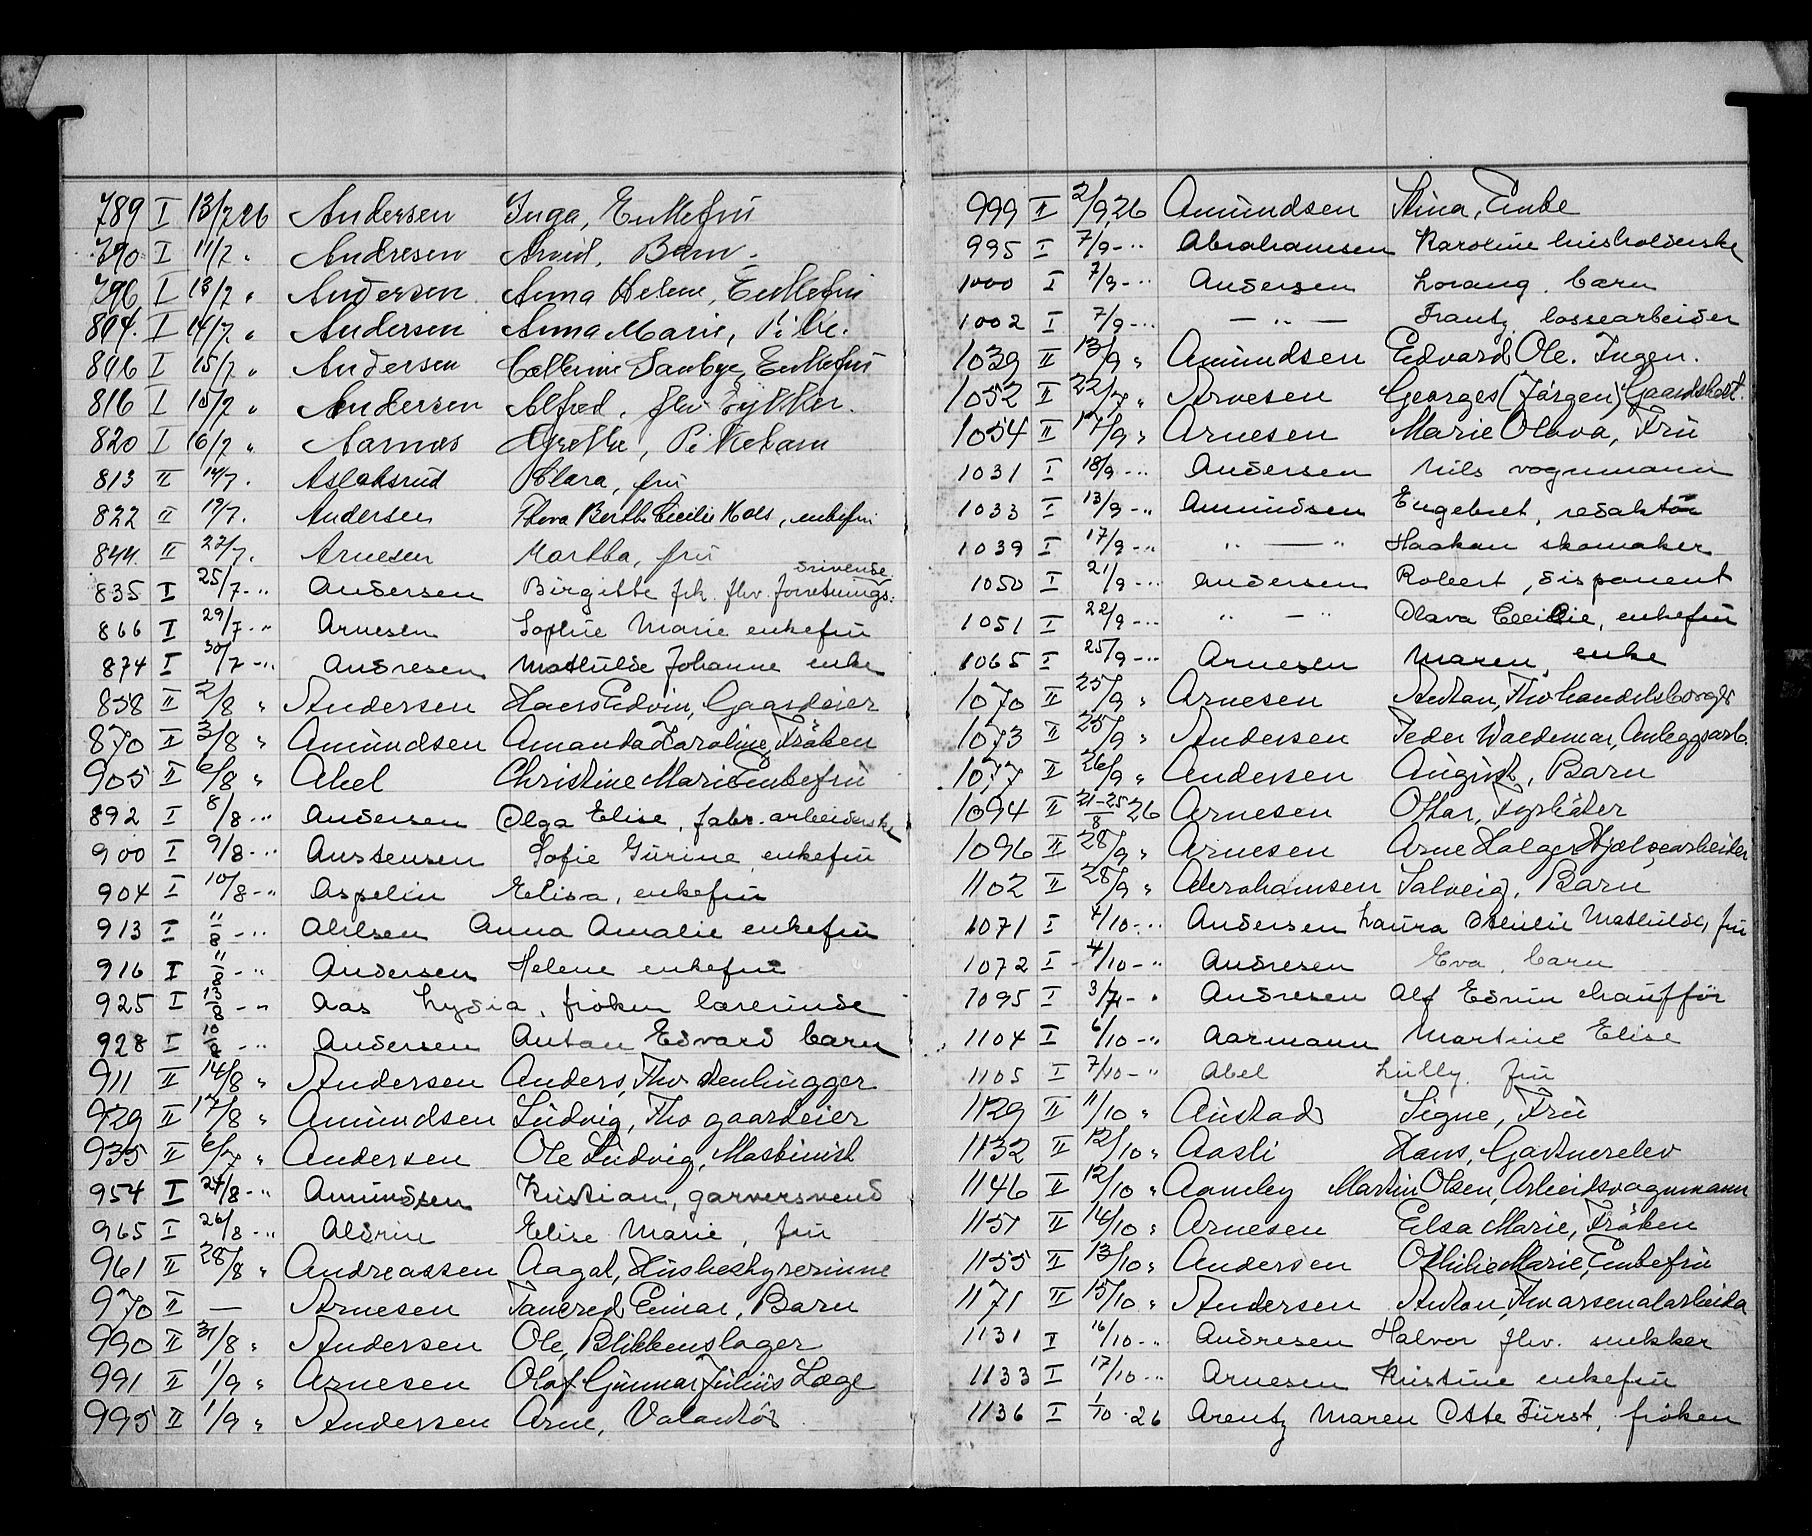 789 I 13/7 26 Andersen Inga, Enkefrü
790 I 11/7 " Andresen Arvid, Barn.
796 I 13/7 " Andersen Anna Helene, Enkefrü
804. I 14/7 " Andersen Anna Marie, Pike.
806 I 15/7 " Andersen Cathrine Enkefrü
816 I 15/7 " Andersen Alfred, fhv
820 I 16/7 " Aarnæs Grethe, Pikebarn
813 II 14/7. Aslaksrud Clara, frü
822 II 19/7. Andersen Thora Berthe Cecilie, enkefrü
844. II 27/7. Arnesen Martha, frü
835 I 25/7 -" Andersen Birgitte frk. fhv. forretnings- drivende
866 I 29/7 -" Arnesen Sophie Marie enkefrü
874 I 30/7 -" Andresen Mathilde Johanne enke
858 II 2/8 " Andersen Hans Edvin, Gaardeier
870 II 3/8 " Amündsen Amanda Karoline, Fröken
905 II 6/8 " Abel Christine Marie Enkefrü
892 I 8/8 -" Andersen Olga Elise, fabr. arbeiderske
900 I 9/8 -" Austensen Sofie Gurine, enkefrü
904 I 10/8 -" Aspelin Elisa, enkefrü
913 I 11/8 -" Ahlsen Anna Amalie enkefrü
916 I 11/8 -" Andersen Helene enkefrü
925 I -" Aas Lydia, fröken lærerinde
928 I -" Andersen Anton Edvard barn
911 II 14/8 " Andersen Anders, Fhv Stenhugger
929 II 17/8 " Amündsen Lüdvig, Fhv gaardeier
935 II 6/7 " Andersen Ole Lüdvig, Maskinist
954 I 24/8 -" Amündsen Kristian, garversvend
965 I 26/8 -" Aldrin Elise Marie, frü
961 II 28/8 " Andreassen Aagot, Hüsbestyrerinne
970 II — Arnesen Tancred Einar, Barn
990 II 31/8 " Andersen Ole, Blikkenslager
991 II 1/9 " Arnesen Olaf Gunnar Júliús Læge
995 II 1/9 " Andersen Arne, Volontör
999 II 2/9 26 Amündsen Stina, Enke
995 I 7/9 -" Abrahamsen Karoline husholderske
1000 I 7/9 -" Andersen Lorang, barn
1002 I 7/9 -" — " — Frantz, lossearbeider
1039 II 13/9 " Amündsen Edvard Ole. Ingen.
1052 II 22/7 " Arnesen Georges (Jörgen)
1054 II 17/9 " Arnesen Marie Olava, Frü
1031 I 18/9 -" Andersen Nils vognmann
1033 I 13/9 -" Amündsen Engebret, redaktör
1039 I 17/9 -" " — " Haakon skomaker
1050 I 21/9 -" Andersen Robert, disponent
1051 I 22/9 -" " — " Olava Cecilie, enkefrü
1065 I 25/9 -" Arnesen Maren, enke
1070 II 25/9 " Arnesen Anton, Fhv handelsborger
1073 II 25/9 " Andersen Peder Waldemar, Anleggsarb.
1077 II 26/9 " Andersen August, Barn
1094 II 21-25/8 26 Arnesen Ottar, Fyrböter
1096 II 28/9 " Arnesen Arne Holger Hjælpearbeider
1102 II 28/9 " Abrahamsen Solveig, Barn
1071 I 4/10 -" Andersen Laura Othilie Mathilde, frü
1072 I 4/10 -" Andresen Eva, barn
1095 I 3/7 -" Andresen Alf Edvin chaufför
1104 I 6/10 -" Aarmann Martine Elise
1105 I 7/10 -" Abel Lully, frü
1129 II 11/10 " Aústad Signe, Frü
1132 II 12/10 " Aasli Hans, Gartnerelev
1146 II 12/10 " Aamby Martin Olsen, Arbeidsvognmann
1151 II 14/10 " Arnesen Elsa Marie, Fröken
1155 II 13/10 " Andersen Othilie Marie, Enkefrü
1171 II 15/10 " Andersen Anton, Fhv arsenalarbeider
1131 I 16/10 -" Andresen Halvor fhv. snekker
1133 I 17/10 -" Arnesen Kristine enkefrü
1136 I 1/10 - 26 Arentz Maren Otte Fürst, fröken